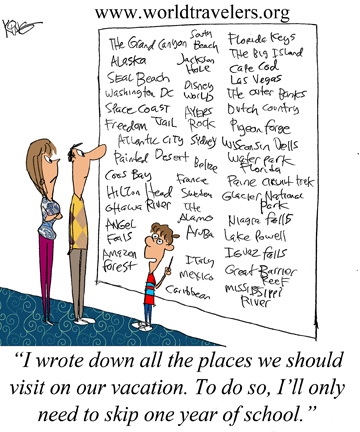 www.worldtravelers.org
The Grand Canyon
Alaska
Seal Beach
Washington DC
Space Coast
Freedom Trail
Atlantic City
Painted Desert
Coos Bay
Hilton Head
Ottawa River
Angel
Falls
Amazon
Forest
South
Beach
Jackson
Hole
Disney
World
Ayers
Rock
Sydney
Belize
France
The
Alamo
Aruba
Italy
Mexico
Caribbean
Florida Keys
The Big Island
Cape Cod
Las Vegas
The Outer Banks
Dutch Country
Pigeon Forge
Wisconsin Dells
Water park
Florida
Paine circuit trek
Glacier National
Park
Niagra Falls
Lake Powell
Iguaz Falls
Great Barrier
Reef
Mississippi
River
“I wrote down all the places we should
visit on our vacation. To do so, I’ll only
need to skip one year of school.”